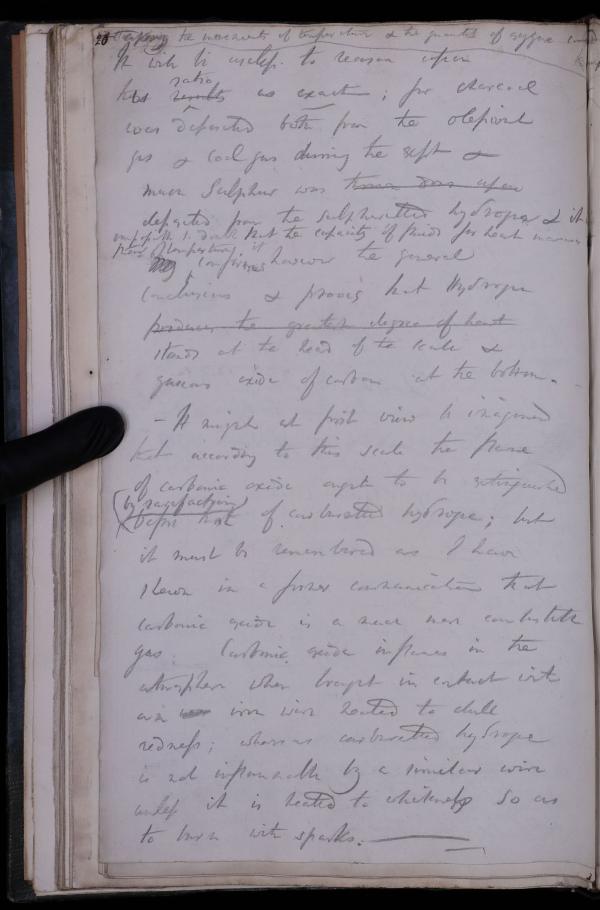 20 Comparing the increments of temperature & the quantities of oxygene consumed
It will be useless to reason upon
ratio
this results as exact; for charcoal
was deposited both from the olefiant
gas & coal gas during the expt &
much Sulphur was
deposited from the sulphuretted hydrogen & it
that the capacity of fluids for heat increase
of temperature, it
confirms however the general
Conclusions & proves that Hydrogen
produces the greatest degree of heat
stands at the head of the scale &
gaseous oxide of carbon at the bottom.
- It might at first view be imagined
that according to this scale the flame
of carbonic oxide ought to be extinguished
by rarefaction
before that of carburetted hydrogen; but
it must be remembered as I have
shewn in a former communication that
carbonic oxide is a much more combustible
gas. Carbonic oxide inflames in the
atmosphere when brought in contact with
an iron wire heated to dull
redness; whereas carburetted hydrogen
is not inflammable by a similar wire
unless it is heated to whiteness so as
to burn with sparks.